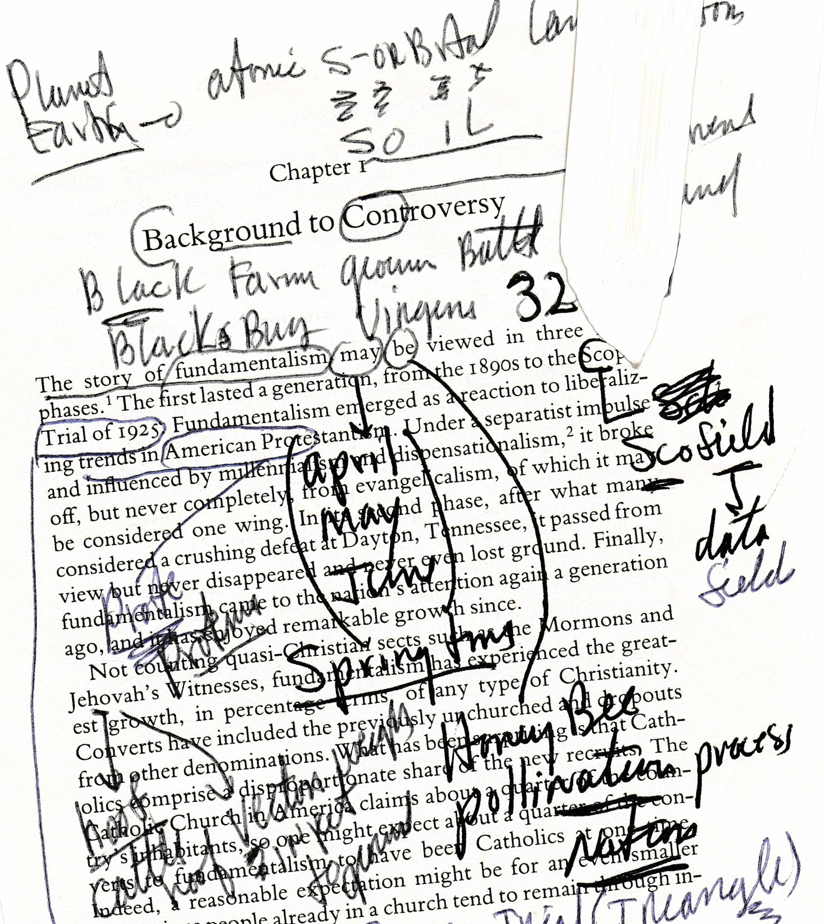 Planet
Earth → atomic S-ORBital
SO IL
Chapter 1
Background to Controversy
Black Farm grown
Blacks Bug Virgens 32
The story of fundamentalism may be viewed in three
phases.¹ The first lasted a generation, from the 1890s to the Scop
Trial of 1925. Fundamentalism emerged as a reaction to liberaliz-
ing trends in American Protestantism. Under a separatist impulse
and influenced by millennialism and dispensationalism,² it broke
off, but never completely, from evangelicalism, of which it may
be considered one wing. In its second phase, after what many
considered a crushing defeat at Dayton, Tennessee, it passed from
view but never disappeared and never even lost ground. Finally,
fundamentalism came to the nation's attention again a generation
ago, and it has enjoyed remarkable growth since.
Scofield
data
field
april
may
June
Spring
Not counting quasi-Christian sects such as the Mormons and
Jehovah's Witnesses, fundamentalism has experienced the great-
est growth, in percentage terms, of any type of Christianity.
Converts have included the previously unchurched and dropouts
from other denominations. What has been surprising is that Cath-
olics comprise a disproportionate share of the new recruits. The
Catholic Church in America claims about a quarter of the coun-
try's inhabitants, so one might expect about a quarter of the con-
verts to fundamentalism to have been Catholics at one time.
Indeed, a reasonable expectation might be for an even smaller
people already in a church tend to remain through in-
Honey Bee
pollination process
Nations
hoof
Cattle
hoof Vector
(Triangle)